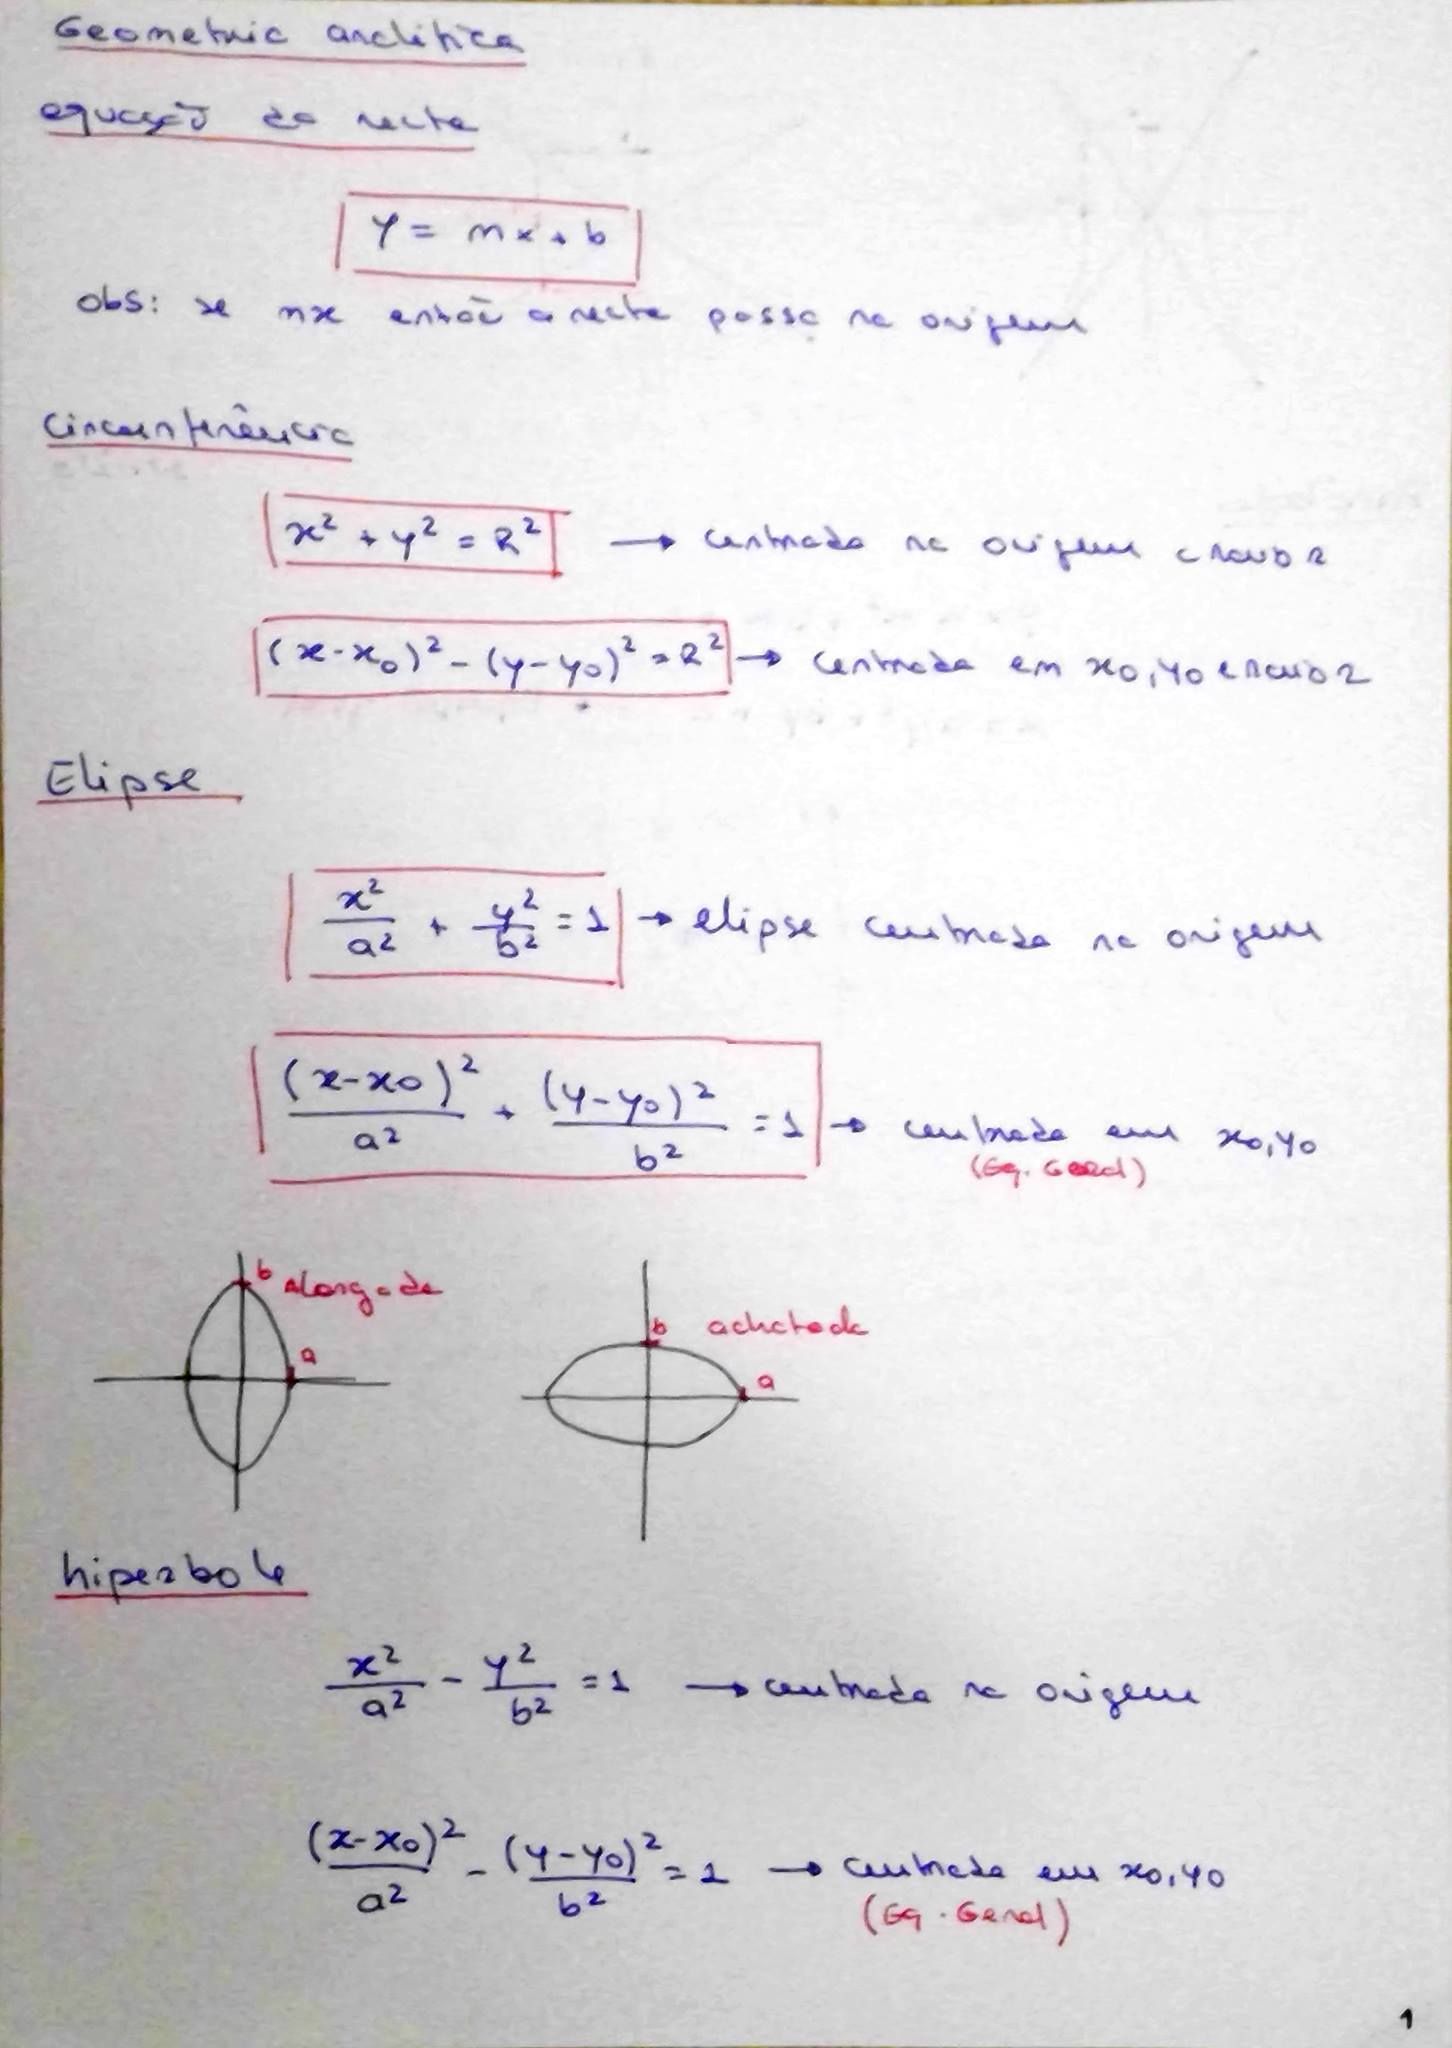 Geometria analitica
equação da recta
y = mx + b
obs: se mx então a recta passa na origem
Circunferência
x² + y² = R² → centrada na origem e raio R
(x-x₀)² - (y-y₀)² = R² → centrada em x₀,y₀ e raio R
Elipse
x²/a² + y²/b² = 1 → elipse centrada na origem
(x-x₀)²/a² + (y-y₀)²/b² = 1 → centrada em x₀,y₀
(Eq. Geral)
b Alongada
a
b achatada
a
hiperbole
x²/a² - y²/b² = 1 → centrada na origem
(x-x₀)²/a² - (y-y₀)²/b² = 1 → centrada em x₀,y₀
(Eq. Geral)
1